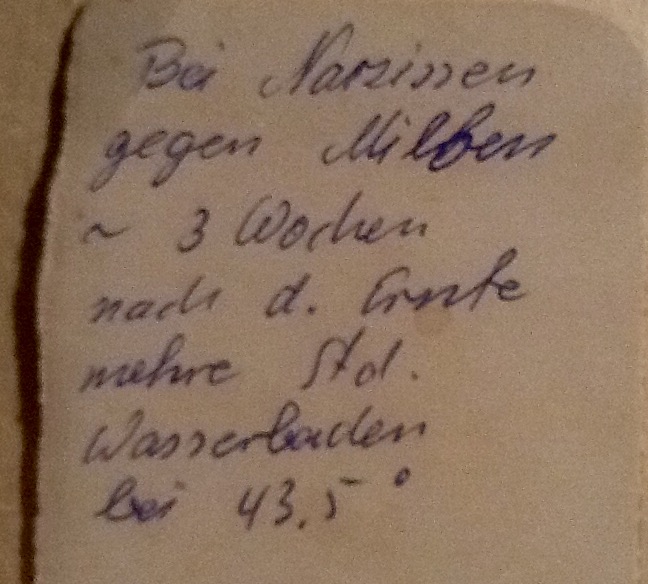 Bei Narzissen
gegen Milben
~ 3 Wochen
nach d. Ernte
mehre Std.
Wasserbaden
bei 43,5°